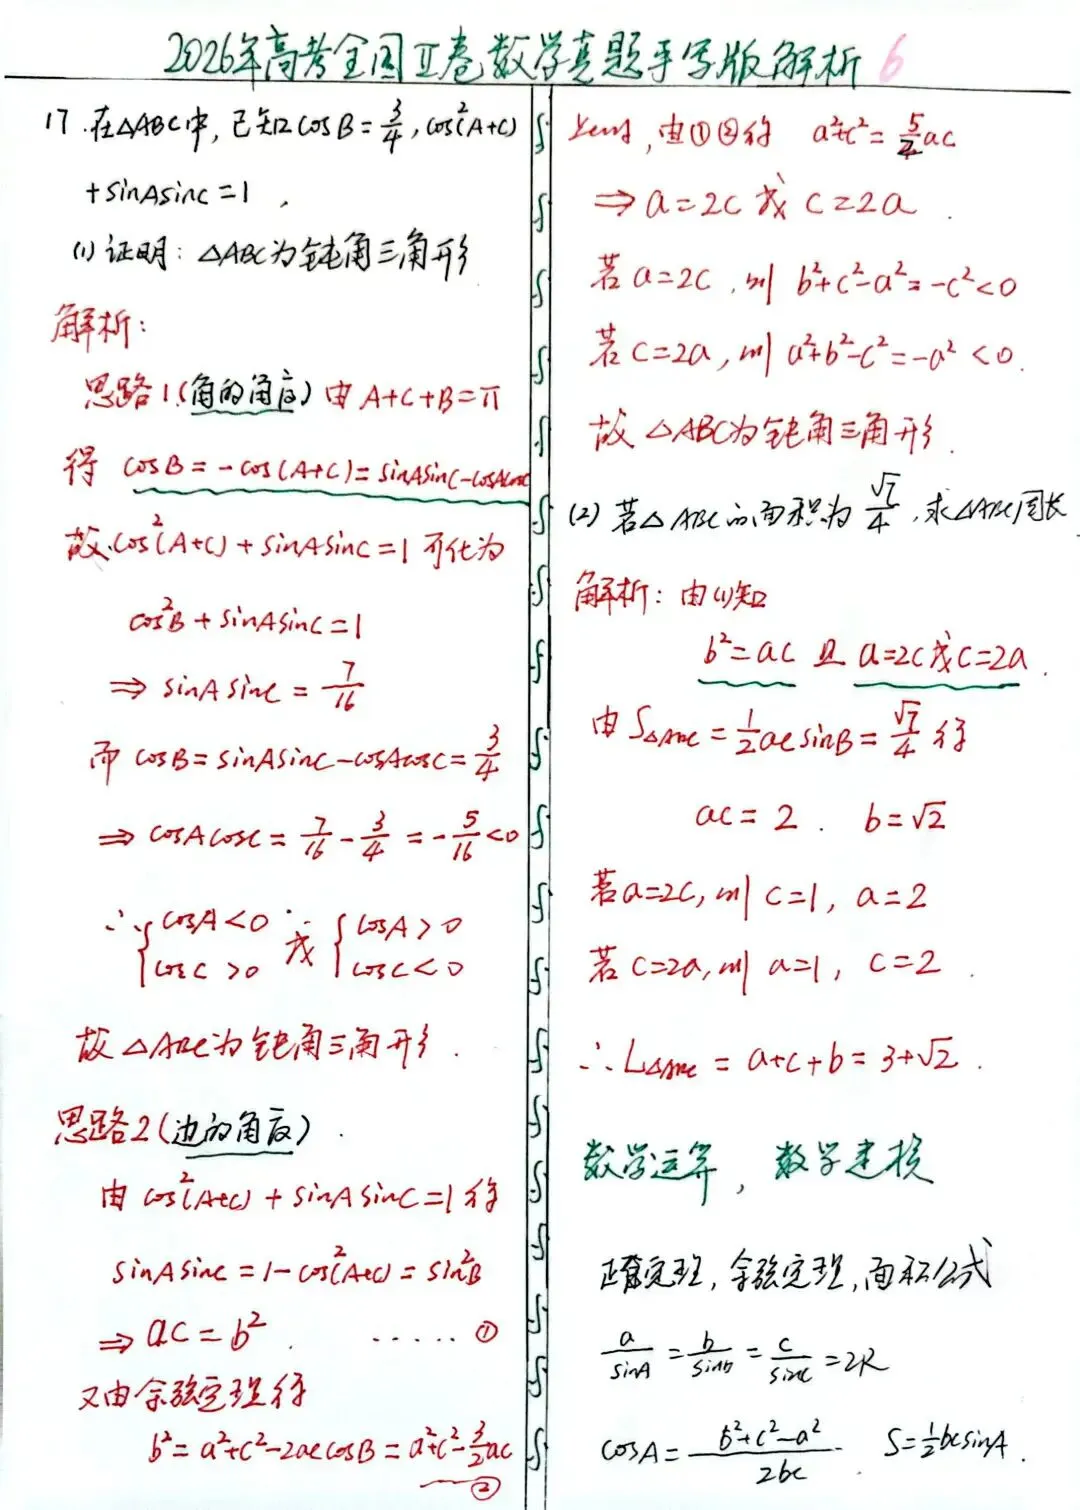 2026年高考全国Ⅱ卷数学真题手写版解析 6
17.在△ABC中,已知cosB=3/4,cos²(A+C)
+sinAsinC=1,
(1)证明:△ABC为钝角三角形
解析:
思路1(角的角度)由A+C+B=π
得 cosB=-cos(A+C)=sinAsinC-cosAcosC
故cos²(A+C)+sinAsinC=1可化为
cos²B+sinAsinC=1
⇒ sinAsinC=7/16
而 cosB=sinAsinC-cosAcosC=3/4
⇒ cosAcosC=7/16-3/4=-5/16<0
∴{cosA<0 或 {cosA>0
cosC>0 cosC<0
故△ABC为钝角三角形.
思路2(边的角度).
由cos²(A+C)+sinAsinC=1得
sinAsinC=1-cos²(A+C)=sin²B
⇒ ac=b². ……①
又由余弦定理得
b²=a²+c²-2accosB=a²+c²-3/2ac
——②
,由①②得 a²+c²=5/2ac
⇒ a=2c或c=2a.
若a=2c,则 b²+c²-a²=-c²<0
若c=2a,则a²+b²-c²=-a²<0.
故△ABC为钝角三角形.
(2)若△ABC的面积为√7/4,求△ABC周长
解析:由(1)知
b²=ac 且 a=2c或c=2a.
由S△ABC=1/2acsinB=√7/4得
ac=2. b=√2
若a=2c,则c=1,a=2
若c=2a,则a=1,c=2.
∴L△ABC=a+c+b=3+√2.
数学运算,数学建模
正弦定理,余弦定理,面积公式
a/sinA=b/sinB=c/sinC=2R
cosA=b²+c²-a²/2bc. S=1/2bcsinA.